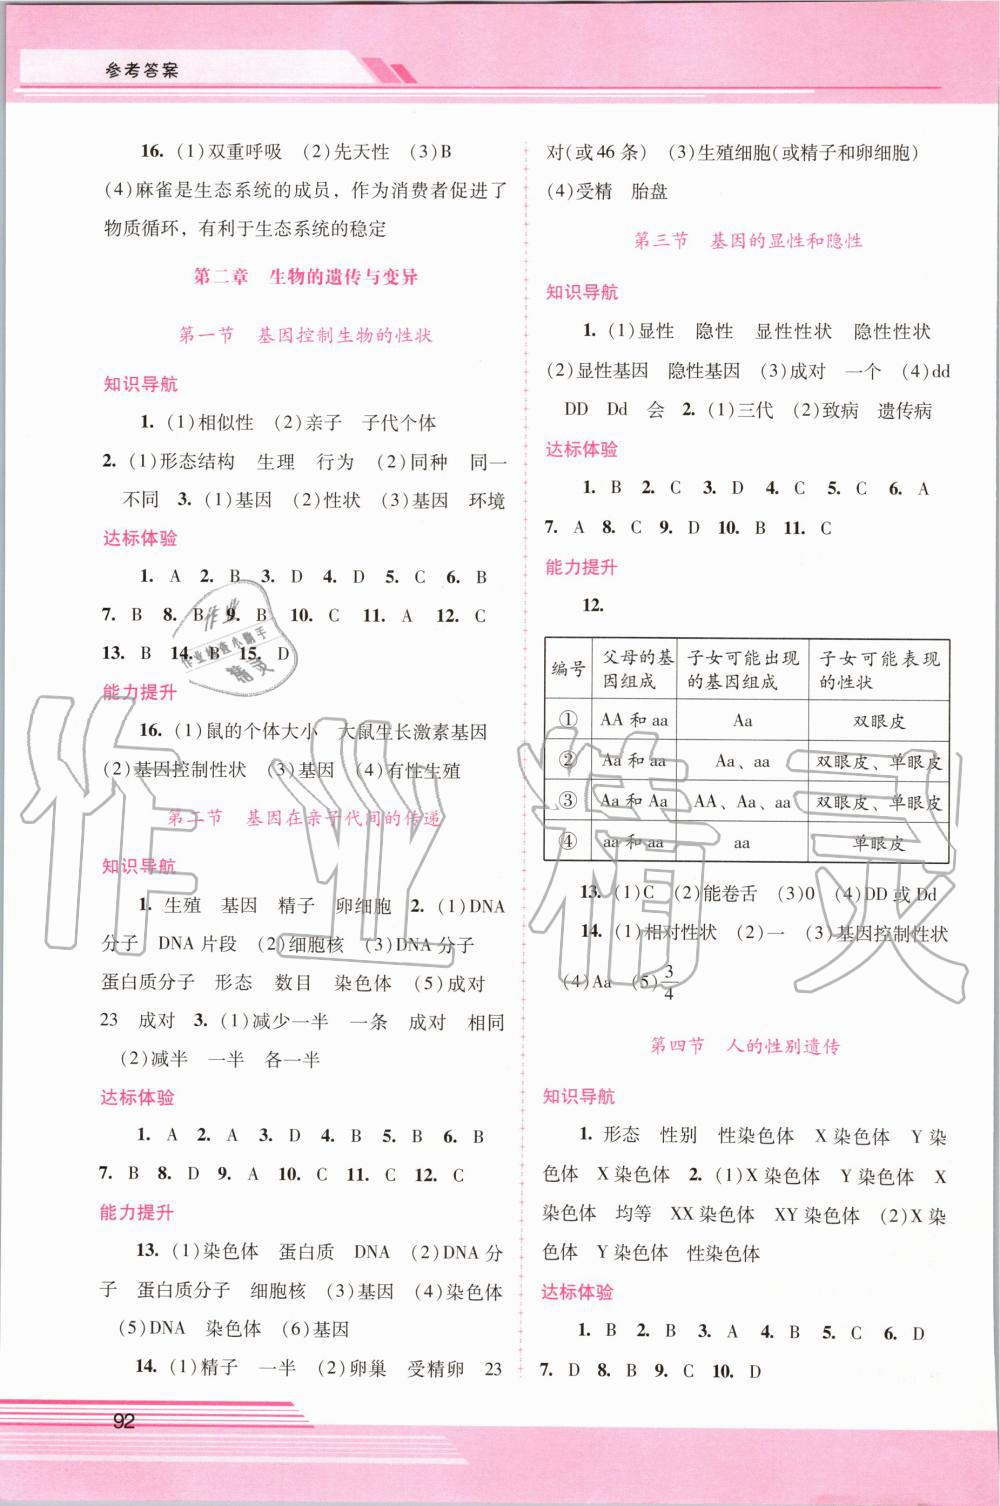 参考答案
16. (1)双重呼吸 (2)先天性 (3)B
(4)麻雀是生态系统的成员，作为消费者促进了
物质循环，有利于生态系统的稳定
第二章 生物的遗传与变异
第一节 基因控制生物的性状
知识导航
1. (1)相似性 (2)亲子 子代个体
2. (1)形态结构 生理 行为 (2)同种 同一
不同 3. (1)基因 (2)性状 (3)基因 环境
达标体验
1. A 2. B 3. D 4. D 5. C 6. B
7. B 8. B 9. B 10. C 11. A 12. C
13. B 14. B 15. D
能力提升
16. (1)鼠的个体大小 大鼠生长激素基因
(2)基因控制性状 (3)基因 (4)有性生殖
第二节 基因在亲子代间的传递
知识导航
1. 生殖 基因 精子 卵细胞 2. (1)DNA
分子 DNA片段 (2)细胞核 (3)DNA分子
蛋白质分子 形态 数目 染色体 (5)成对
23 成对 3. (1)减少一半 一条 成对 相同
(2)减半 一半 各一半
达标体验
1. A 2. A 3. D 4. B 5. B 6. B
7. B 8. D 9. A 10. C 11. C 12. C
能力提升
13. (1)染色体 蛋白质 DNA (2)DNA分
子 蛋白质分子 细胞核 (3)基因 (4)染色体
(5)DNA 染色体 (6)基因
14. (1)精子 一半 (2)卵巢 受精卵 23
92
对(或46条) (3)生殖细胞(或精子和卵细胞)
(4)受精 胎盘
第三节 基因的显性和隐性
知识导航
1. (1)显性 隐性 显性性状 隐性性状
(2)显性基因 隐性基因 (3)成对 一个 (4)dd
DD Dd 会 2. (1)三代 (2)致病 遗传病
达标体验
1. B 2. C 3. D 4. C 5. C 6. A
7. A 8. C 9. D 10. B 11. C
能力提升
12.
编号 父母的基因组成 子女可能出现的基因组成 子女可能表现的性状
① AA和aa Aa 双眼皮
② Aa和aa Aa、aa 双眼皮、单眼皮
③ Aa和Aa AA、Aa、aa 双眼皮、单眼皮
④ aa和aa aa 单眼皮
13. (1)C (2)能卷舌 (3)0 (4)DD或Dd
14. (1)相对性状 (2)一 (3)基因控制性状
(4)Aa (5)3/4
第四节 人的性别遗传
知识导航
1. 形态 性别 性染色体 X染色体 Y染
色体 X染色体 2. (1)X染色体 Y染色体 X
染色体 均等 XX染色体 XY染色体 (2)X染
色体 Y染色体 性染色体
达标体验
1. B 2. B 3. A 4. B 5. C 6. D
7. D 8. B 9. C 10. D
作业精灵
作业
作业检查小助手
精灵